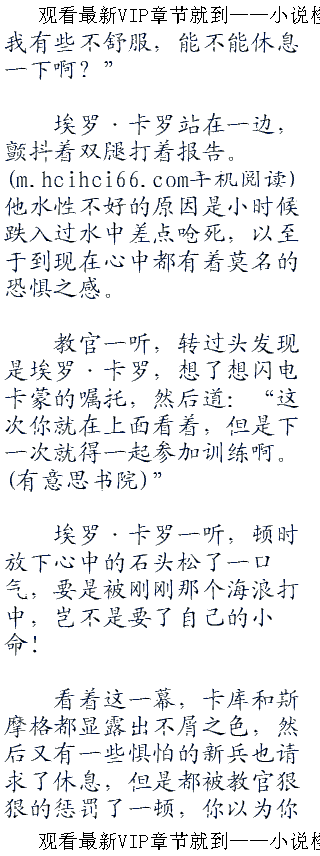 观看最新VIP章节就到——小说
我有些不舒服，能不能休息
一下啊？”
埃罗·卡罗站在一边，
颤抖着双腿打着报告。
(m.hcihci66.com手机阅读)
他水性不好的原因是小时候
跌入过水中差点呛死，以至
于到现在心中都有着莫名的
恐惧之感。
教官一听，转过头发现
是埃罗·卡罗，想了想闪电
卡蒙的嘱托，然后道：“这
次你就在上面看着，但是下
一次就得一起参加训练啊。
(有意思书院)”
埃罗·卡罗一听，顿时
放下心中的石头松了一口
气，要是被刚刚那个海浪打
中，岂不是要了自己的小
命！
看着这一幕，卡库和斯
摩格都显露出不屑之色，然
后又有一些惧怕的新兵也请
求了休息，但是都被教官狠
狠的惩罚了一顿，你以为你
观看最新VIP章节就到——小说